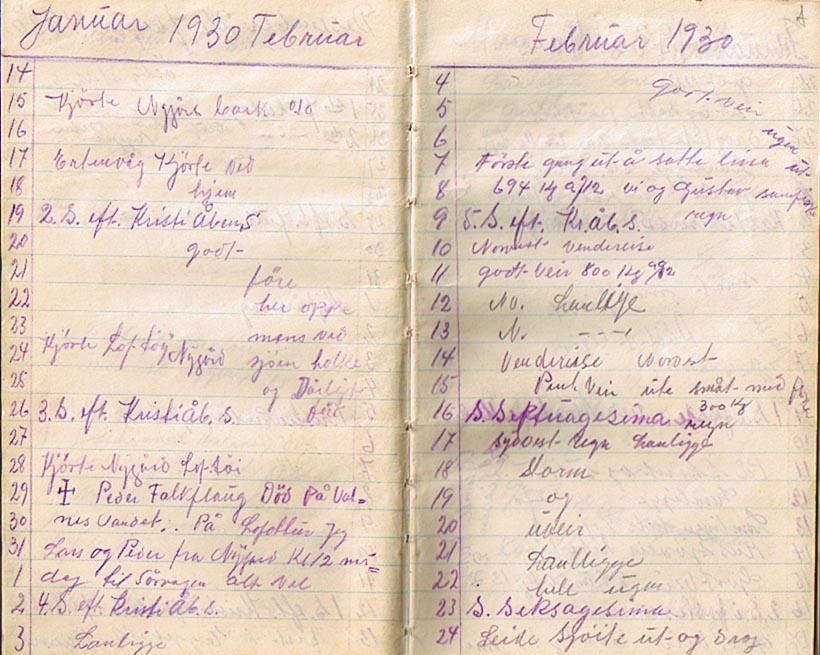 Januar 1930 Februar
14
15 Kjörte Nyjord
16
17 Kjörte ved
18 hjem
19 2. S. eft. Kristi Åbenb.
20 godt
21 före
22 her oppe
23 mens ved
24 Kjörte Lof.töi Nyjord sjöen holke
25 og Dårligt
26 3. S. eft. Kristi Åb. S. före
27
28 Kjörte Nyjord Lof.töi
29 ✝ Peder Falkflaug Död På Val-
30 nes Vandet. På Lofottur Jeg
31 Lars og Peder fra Nyjord Kl 12 mi=
1 dag til Sörvagen alt vel
2 4. S. eft. Kristi Åb. S.
3 Lanligge
Februar 1930
4 godt veir
5
6 ingen
7 Förste gang ut å satte linen ut-
8 694 kg a/12 vi og Gustav samfiske
9 5. S. eft. Kr. åb. S. regn
10 Norvest Vendereise
11 godt Veir 800 Kg a/12
12 No. Lanligge
13 N. – – –
14 Vendereise Norvest
15 Pent Veir ute småt med
16 S. Septuagesima 300 Kg
17 sydvest regn Lanligge regn
18 Storm
19 og
20 uveir
21 Lanligge
22 hele ugen
23 S. Seksagesima
24 Leide Sjöite ut og drog